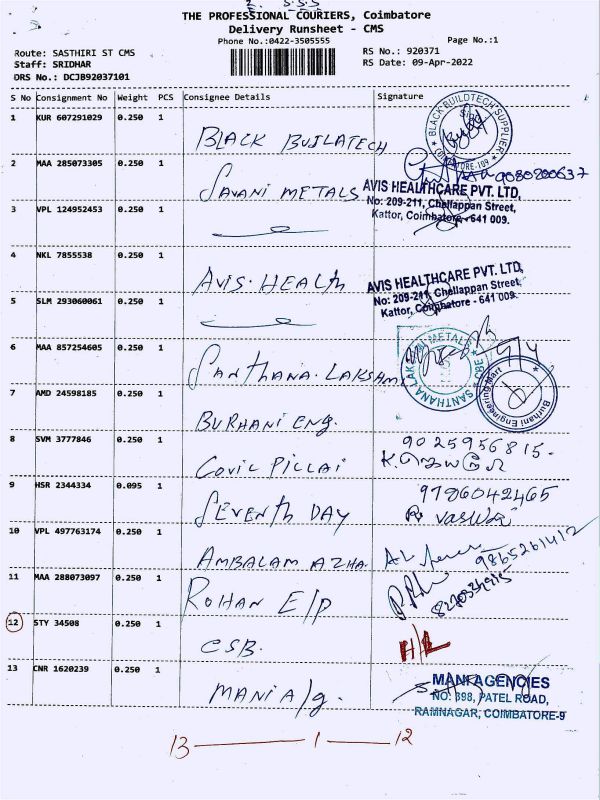 2. S.S.S
THE PROFESSIONAL COURIERS, Coimbatore
Delivery Runsheet - CMS
Phone No.:0422-3505555
Page No.:1
Route: SASTHIRI ST CMS
Staff: SRIDHAR
DRS No.: DCJB92037101
RS No.: 920371
RS Date: 09-Apr-2022
S No Consignment No Weight PCS Consignee Details Signature
1 KUR 607291029 0.250 1 BLACK BUILATECH
BLACK BUILDTECH SUPPLIER
2 MAA 285073305 0.250 1 SAVANI METALS
9080200637
3 VPL 124952453 0.250 1
AVIS HEALTHCARE PVT. LTD,
No: 209-211, Chellappan Street,
Kattor, Coimbatore - 641 009.
4 NKL 7855538 0.250 1 AVIS. HEALTH
5 SLM 293060061 0.250 1
AVIS HEALTHCARE PVT. LTD,
No: 209-211, Chellappan Street,
Kattor, Coimbatore - 641 009.
6 MAA 857254605 0.250 1 SANTHANA. LAKSHMI
SANTHANA LAKSHMI METALS
9/4
7 AMD 24598185 0.250 1 BURHANI ENG.
Burhani Engineering Mart
8 SVM 3777846 0.250 1 COVIL PILLAI
9025956815-
9 HSR 2344334 0.095 1 SEVENTH DAY
9786042465
10 VPL 497763174 0.250 1 AMBALAM AZHA.
9865261412
11 MAA 288073097 0.250 1 ROHAN E/P
12 STY 34508 0.250 1 CSB.
H/R
13 CNR 1620239 0.250 1 MANI A/g.
MANI AGENCIES
NO: 398, PATEL ROAD,
RAMNAGAR, COIMBATORE-9
13 — 1 — 12